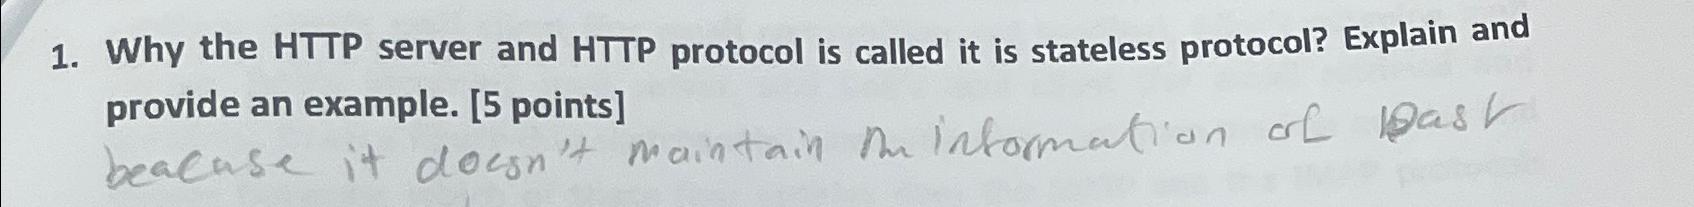 1. Why the HTTP server and HTTP protocol is called it is stateless protocol? Explain and
provide an example. [5 points]
beacuse it doesn't maintain information of past